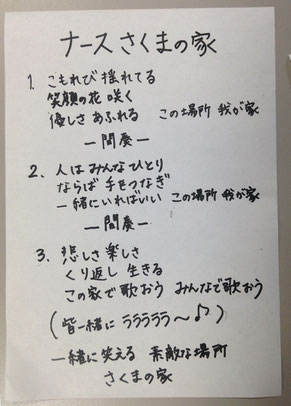 ナースさくまの家
1. こもれび 揺れてる
笑顔の花 咲く
優しさ あふれる この場所 我が家
ー間奏ー
2. 人は みんな ひとり
ならば 手をつなぎ
一緒に いれば いい この場所 我が家
ー間奏ー
3. 悲しさ 楽しさ
くり返し 生きる
この家で 歌おう みんなで 歌おう
(皆一緒に ラララララ〜♪)
一緒に 笑える 素敵な 場所
さくまの家